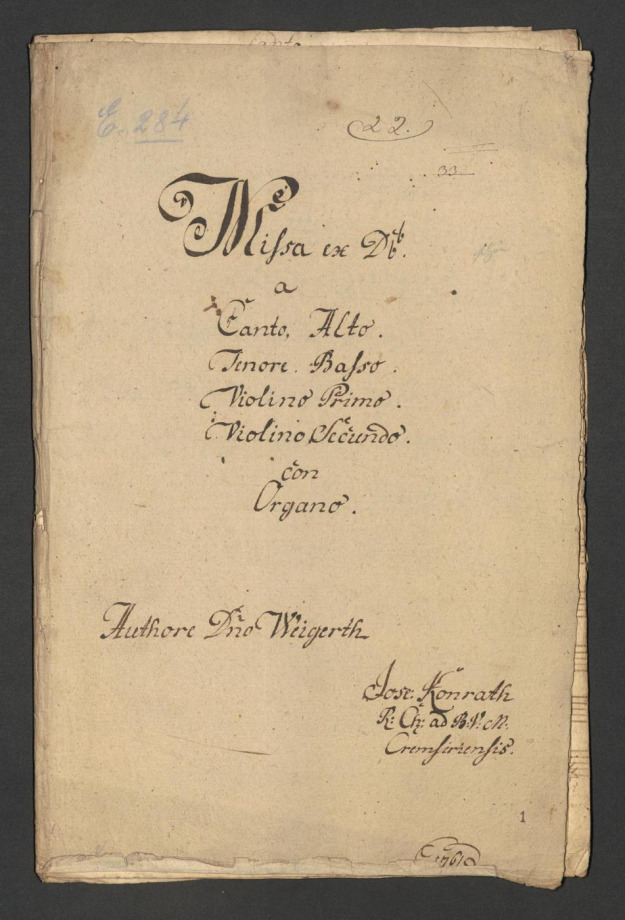 E. 284
22.
33
Missa ex Db.
a
Canto, Alto.
Tenore. Basso.
Violino Primo.
Violino Secundo.
con
Organo.
Authore Dno Weigerth
Jose: Konrath
R: Ch: ad B: V: M:
Cremsiriensis.
1